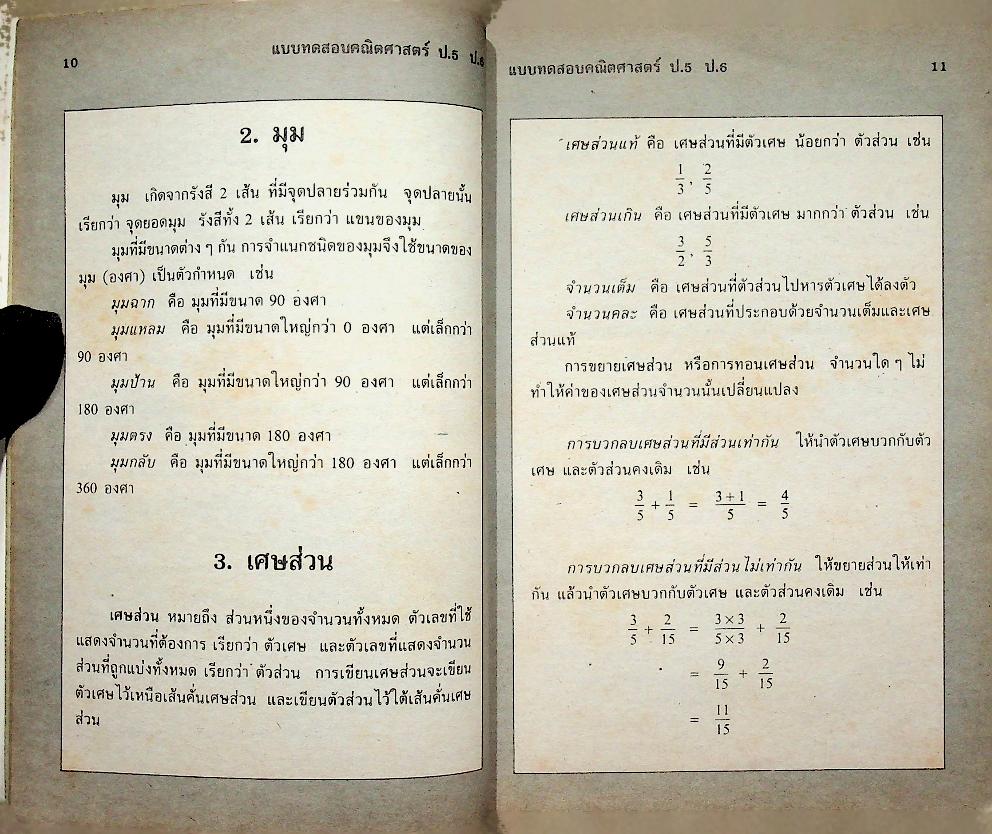 10
แบบทดสอบคณิตศาสตร์ ป.5 ป.6
2. มุม
มุม เกิดจากรังสี 2 เส้น ที่มีจุดปลายร่วมกัน จุดปลายนั้น
เรียกว่า จุดยอดมุม รังสีทั้ง 2 เส้น เรียกว่า แขนของมุม
มุมที่มีขนาดต่าง ๆ กัน การจำแนกชนิดของมุมจึงใช้ขนาดของ
มุม (องศา) เป็นตัวกำหนด เช่น
มุมฉาก คือ มุมที่มีขนาด 90 องศา
มุมแหลม คือ มุมที่มีขนาดใหญ่กว่า 0 องศา แต่เล็กกว่า
90 องศา
มุมป้าน คือ มุมที่มีขนาดใหญ่กว่า 90 องศา แต่เล็กกว่า
180 องศา
มุมตรง คือ มุมที่มีขนาด 180 องศา
มุมกลับ คือ มุมที่มีขนาดใหญ่กว่า 180 องศา แต่เล็กกว่า
360 องศา
3. เศษส่วน
เศษส่วน หมายถึง ส่วนหนึ่งของจำนวนทั้งหมด ตัวเลขที่ใช้
แสดงจำนวนที่ต้องการ เรียกว่า ตัวเศษ และตัวเลขที่แสดงจำนวน
ส่วนที่ถูกแบ่งทั้งหมด เรียกว่า ตัวส่วน การเขียนเศษส่วนจะเขียน
ตัวเศษไว้เหนือเส้นคั่นเศษส่วน และเขียนตัวส่วนไว้ใต้เส้นคั่นเศษ
ส่วน
แบบทดสอบคณิตศาสตร์ ป.5 ป.6
11
เศษส่วนแท้ คือ เศษส่วนที่มีตัวเศษ น้อยกว่า ตัวส่วน เช่น
1/3, 2/5
เศษส่วนเกิน คือ เศษส่วนที่มีตัวเศษ มากกว่า ตัวส่วน เช่น
3/2, 5/3
จำนวนเต็ม คือ เศษส่วนที่ตัวส่วนไปหารตัวเศษได้ลงตัว
จำนวนคละ คือ เศษส่วนที่ประกอบด้วยจำนวนเต็มและเศษ
ส่วนแท้
การขยายเศษส่วน หรือการทอนเศษส่วน จำนวนใด ๆ ไม่
ทำให้ค่าของเศษส่วนจำนวนนั้นเปลี่ยนแปลง
การบวกลบเศษส่วนที่มีส่วนเท่ากัน ให้นำตัวเศษบวกกับตัว
เศษ และตัวส่วนคงเดิม เช่น
3/5 + 1/5 = 3+1/5 = 4/5
การบวกลบเศษส่วนที่มีส่วนไม่เท่ากัน ให้ขยายส่วนให้เท่า
กัน แล้วนำตัวเศษบวกกับตัวเศษ และตัวส่วนคงเดิม เช่น
3/5 + 2/15 = 3×3/5×3 + 2/15
= 9/15 + 2/15
= 11/15